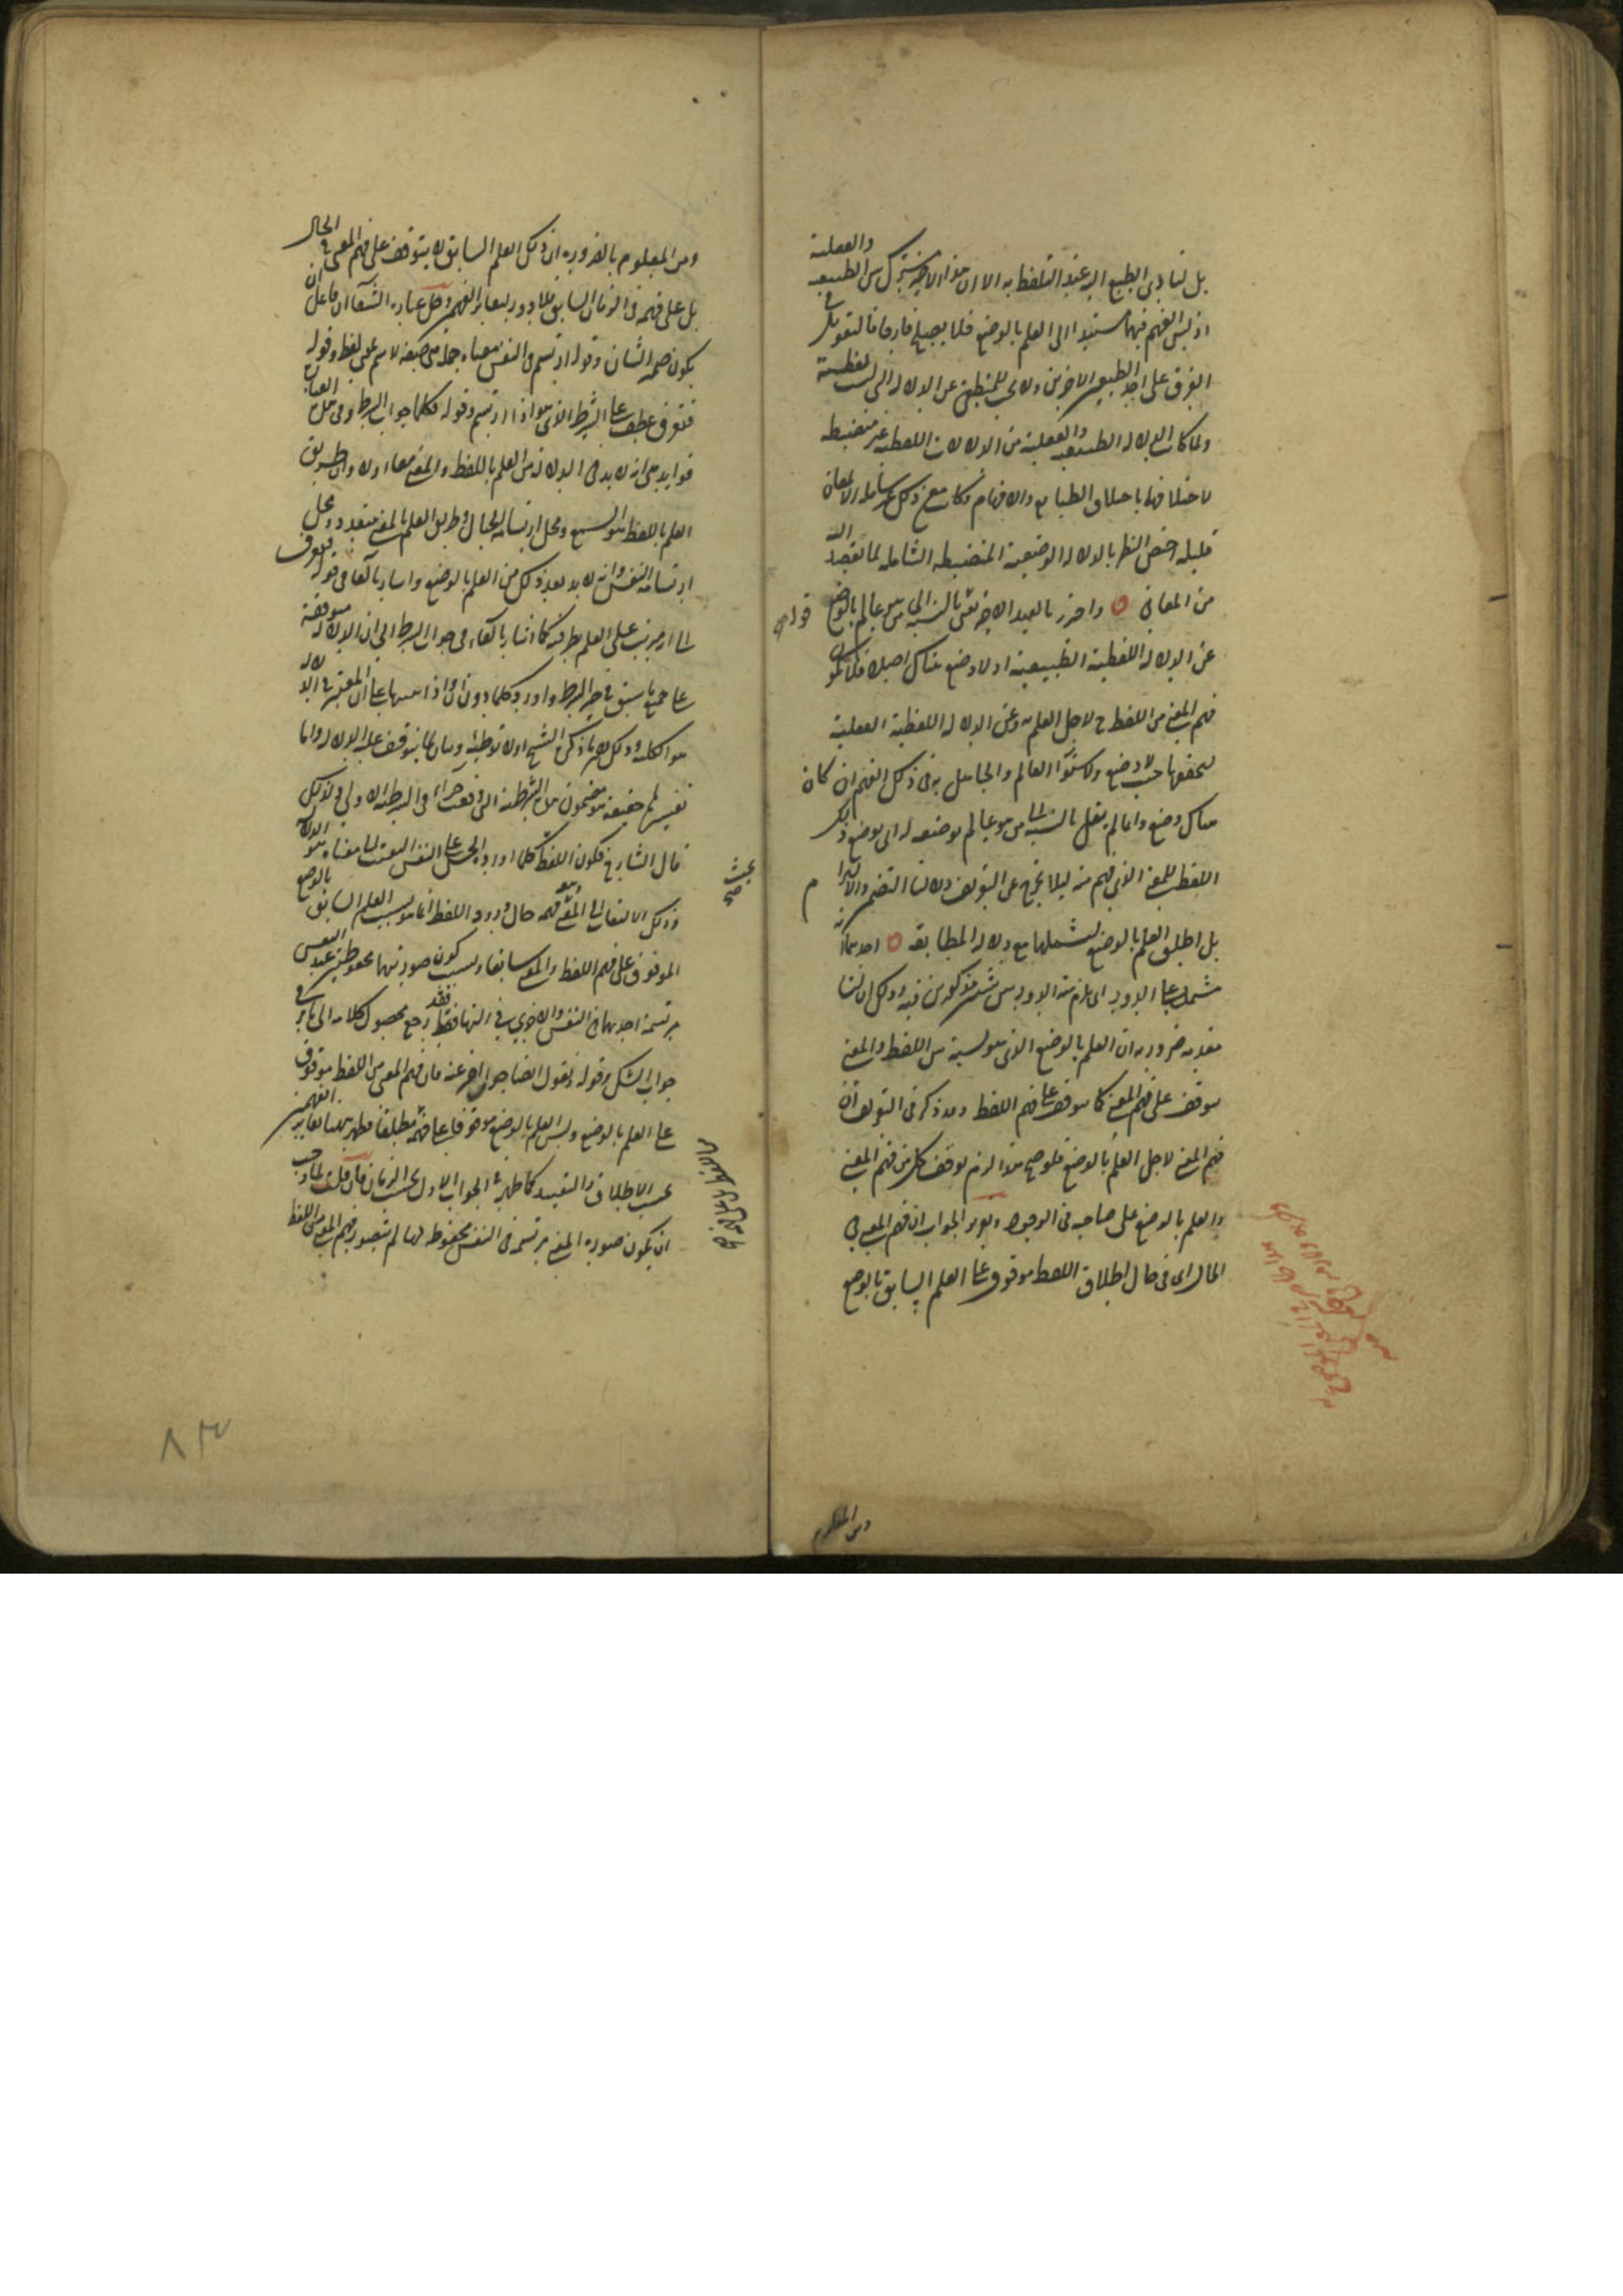 بل لتأدى الطبع اليه عند التلفظ به الا ان هذا الاخير مشترك بين الطبيعية والعقلية
اذ ليس الفهم فيهما مستندا الى العلم بالوضع فلا يصلح فارقا فالتعويل في
الفرق على احد الاخرين ولا بحث للمنطقى عن الدلالة التى ليست لفظية
ولما كانت الدلالة الطبيعية والعقلية من الدلالات اللفظية غير منضبطة
لاختلافها باختلاف الطبايع والافهام وكانت مع ذلك غير شاملة الا لمعان
قليلة اختص النظر بالدلالة الوضعية المنضبطة الشاملة لما يقصد اليه
من المعانى واحترز بالقيد الاخير نعنى بالنسبة الى من هو عالم بالوضع
عن الدلالة اللفظية الطبيعية اذ لا وضع هناك اصلا فلا يكون
فهم المعنى من اللفظ لاجل العلم به وعن الدلالة اللفظية العقلية
لتحققها حيث لا وضع ولاستواء العالم والجاهل به فى ذلك الفهم ان كان
هناك وضع وانما لم يقل بالنسبة الى من هو عالم بوضعه له اى بوضع ذلك
اللفظ للمعنى الذى فهم منه ليلا يخرج عن التعريف دلالتا التضمن والالتزام
بل اطلق العلم بالوضع ليشملها مع دلالة المطابقة احدهما انه
مشتمل على الدور اى يلزم منه الدور بين شيئين مذكورين فيه وذلك ان لنا
مقدمة ضرورية ان العلم بالوضع الذى هو نسبة بين اللفظ والمعنى
موقوف على فهم المعنى كما يتوقف على فهم اللفظ وقد ذكر فى التعريف ان
فهم المعنى لاجل العلم بالوضع فلو صح هذا لزم توقف كل من فهم المعنى
والعلم بالوضع على صاحبه فى الوجود وتقرير الجواب ان فهم المعنى فى
الحال اى فى حال اطلاق اللفظ موقوف على العلم السابق بالوضع
ومن المعلوم
ومن المعلوم بالضرورة ان ذلك العلم السابق لا يتوقف على فهم المعنى فى الحال
بل على فهمه فى الزمان السابق فلا دور لتغاير الفهمين وحل عبارة الشفا ان فاعل ان
يكون ضمير الشان وقوله ارتسم فى النفس معناه جملة هى صفة لاسم هى لفظ وقوله
فتعرف عطف على الشرط الذى هو اذا ارتسم وقوله فكلما جواب الشرط وفى هذه العبارة
فوايد هى انه لا بد فى الدلالة من العلم باللفظ والمعنى معا اولا وان طريق
العلم باللفظ هو السمع ومحل ارتسامه الخيال وطريق العلم بالمعنى متعدد ومحل
ارتسامه النفس وانه لا بد بعد ذلك من العلم بالوضع واشار بالفا فى قوله فتعرف
الى انه مرتب على العلم بطرفيه كما اشار بالفاء فى جواب الشرط الى ان الدلالة موقوفة
على جميع ما سبق فى حيز الشرط واورد كلما دون ان واذا تنبيها على ان المعتبر فى الدلالة
هو الكلية وذلك ما ذكره الشيخ اولا توطئة وبيان لما يتوقف عليه الدلالة واما
تفسيرها حقيقة فهو مضمون هذه الشرطية التى وقعت جزاء فى الشرطية الاولى ولذلك
قال الشارح فكون اللفظ كلما اورده الحس على النفس التفتت الى معناه هو الدلالة
وذلك الالتفات الى المعنى وهو فهمه حال ورود اللفظ انما هو بسبب العلم السابق بالوضع
الموقوف على فهم اللفظ والمعنى سابقا وبسبب كون صورتيهما محفوظتين عند النفس
مرتسمة احديهما فى النفس والاخرى فى التها فقد رجع محصول كلامه الى ما ذكر فى
جواب الشك وقوله ونقول ايضا جواب اخر عنه فان فهم المعنى من اللفظ موقوف
على العلم بالوضع وليس العلم بالوضع موقوفا على فهمه منه بل على فهمه مطلقا فظهر هنا تغاير الفهمين
بحسب الاطلاق والتقييد كما ظهر فى الجواب الاول بحسب الزمان فان قلت لما وجب
ان يكون صورة المعنى مرتسمة فى النفس محفوظة لها لم يتصور فهم المعنى من اللفظ